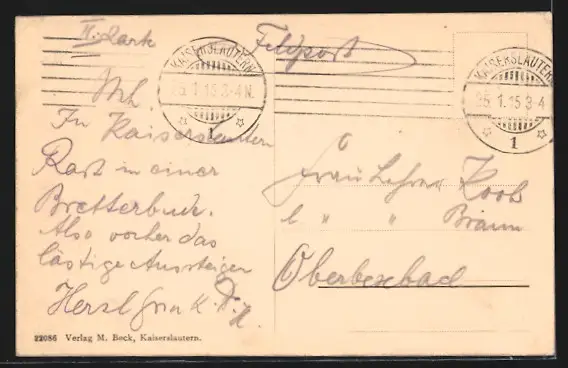 II. Karte
Feldpost
KAISERSLAUTERN
25.1.15.3-4N.
1
KAISERSLAUTERN
25.1.15.3-4
1
In Kaiserslautern
Rast in einer
Bretterbude.
Also vorher das
lästige Aussteigen
Herzl. Gruß K.
Frau Lehrer Koob
b. " " Braun
Oberbexbach
22086 Verlag M. Beck, Kaiserslautern.